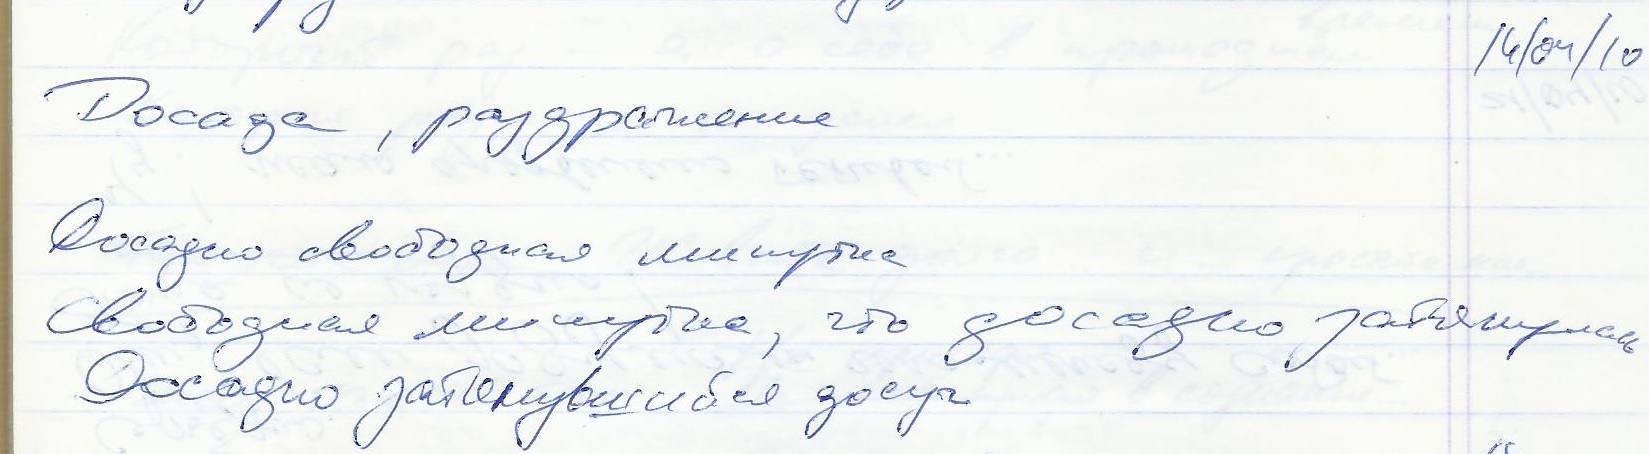 14/04/10
Досада, раздражение
Досадно свободная минутка
Свободная минутка, что досадно затянулась
Досадно затянувшийся досуг